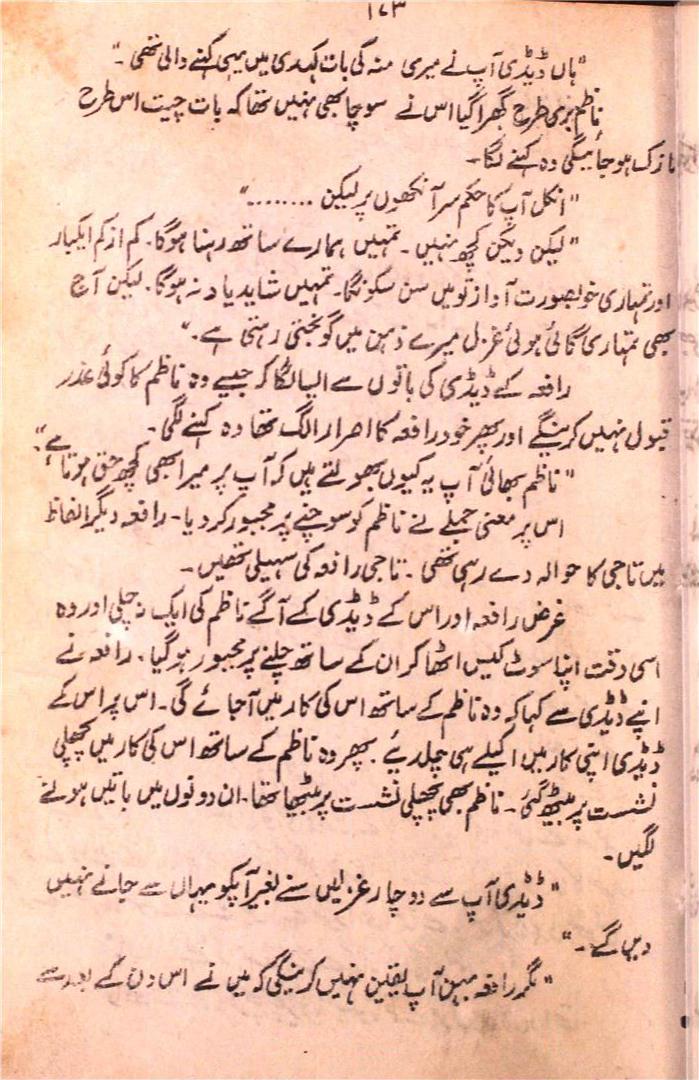 ۱۷۳
"ہاں ڈیڈی آپ نے میری منہ کی بات کہدی میں یہی کہنے والی تھی۔"
ناظم بری طرح گھبرا گیا اس نے سوچا بھی نہیں تھا کہ بات چیت اس طرح
نازک ہو جائیگی وہ کہنے لگا۔
"انکل آپ کا حکم سر آنکھوں پر لیکن ........"
"لیکن ویکن کچھ نہیں۔ تمہیں ہمارے ساتھ رہنا ہوگا۔ کم از کم ایکبار
اور تمہاری خوبصورت آواز تو میں سن سکونگا۔ تمہیں شاید یاد نہ ہوگا۔ لیکن آج
بھی تمہاری گائی ہوئی غزل میرے ذہن میں گونجتی رہتی ہے۔"
رافعہ کے ڈیڈی کی باتوں سے ایسا لگا کہ جیسے وہ ناظم کا کوئی عذر
قبول نہیں کرینگے اور پھر خود رافعہ کا اصرار الگ تھا وہ کہنے لگی۔
"ناظم بھائی آپ یہ کیوں بھولتے ہیں کہ آپ پر میرا بھی کچھ حق ہوتا ہے۔"
اس پر معنی جملے نے ناظم کو سوچنے پر مجبور کر دیا۔ رافعہ دیگر الفاظ
میں تاجی کا حوالہ دے رہی تھی۔ تاجی رافعہ کی سہیلی تھیں۔
غرض رافعہ اور اس کے ڈیڈی کے آگے ناظم کی ایک نہ چلی اور وہ
اسی وقت اپنا سوٹ کیس اٹھا کر ان کے ساتھ چلنے پر مجبور ہو گیا۔ رافعہ نے
اپنے ڈیڈی سے کہا کہ وہ ناظم کے ساتھ اس کی کار میں آجائے گی۔ اس پر اس کے
ڈیڈی اپنی کار میں اکیلے ہی چلدیئے۔ پھر وہ ناظم کے ساتھ اس کی کار میں پچھلی
نشست پر بیٹھ گئی۔ ناظم بھی پچھلی نشست پر بیٹھا تھا۔ ان دونوں میں باتیں ہونے
لگیں۔
"ڈیڈی آپ سے دو چار غزلیں سنے بغیر آپکو یہاں سے جانے نہیں
دیں گے۔"
"مگر رافعہ بہن آپ یقین نہیں کرینگی کہ میں نے اس دن کے بعد سے